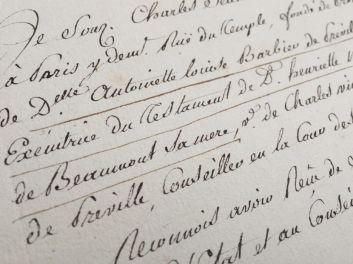 Je Souz. Charles
à Paris y demt. Rüe du Temple, fondé de
de Dlle. Antoinette Louise Barbier de Préville
Exécutrice du Testament de De. henriette
de Beaumont Sa mere, ve. de Charles
de Préville, Conseiller en la Cour des
Reconnois avoir Reçu de
d'Etat et au Conseil